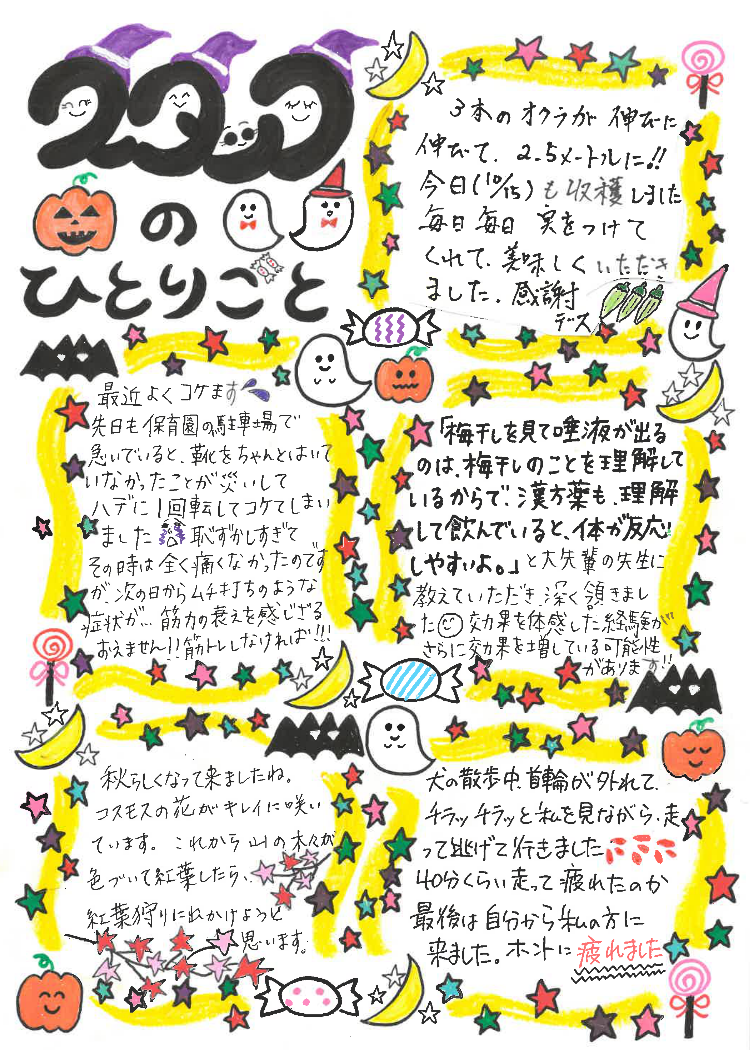 の
ひとりごと
3本のオクラが 伸びに
伸びて、2.5メートルに!!
今日(10/15)も収穫しました
毎日毎日 実をつけて
くれて、美味しくいただき
ました。感謝
デス
最近よくコケます
先日も保育園の駐車場で
急いでいると、靴をちゃんとはいて
いなかったことが災いして
ハデに1回転してコケてしまい
ました 恥ずかしすぎて
その時は全く痛くなかったのです
が、次の日からムチ打ちのような
症状が… 筋力の衰えを感じざる
おえません!!筋トレしなければ!!!
「梅干しを見て唾液が出る
のは、梅干しのことを理解して
いるからで、漢方薬も、理解
して飲んでいると、体が反応
しやすいよ。」と大先輩の先生に
教えていただき 深く頷きまし
た 効果を体感した経験が
さらに効果を増している可能性
があります!!
秋らしくなって来ましたね。
コスモスの花がキレイに咲い
ています。これから山の木々が
色づいて紅葉したら、
紅葉狩りに出かけようと
思います。
犬の散歩中、首輪が外れて、
チラッチラッと私を見ながら、走
って逃げて行きました
40分くらい走って疲れたのか
最後は自分から私の方に
来ました。ホントに疲れました